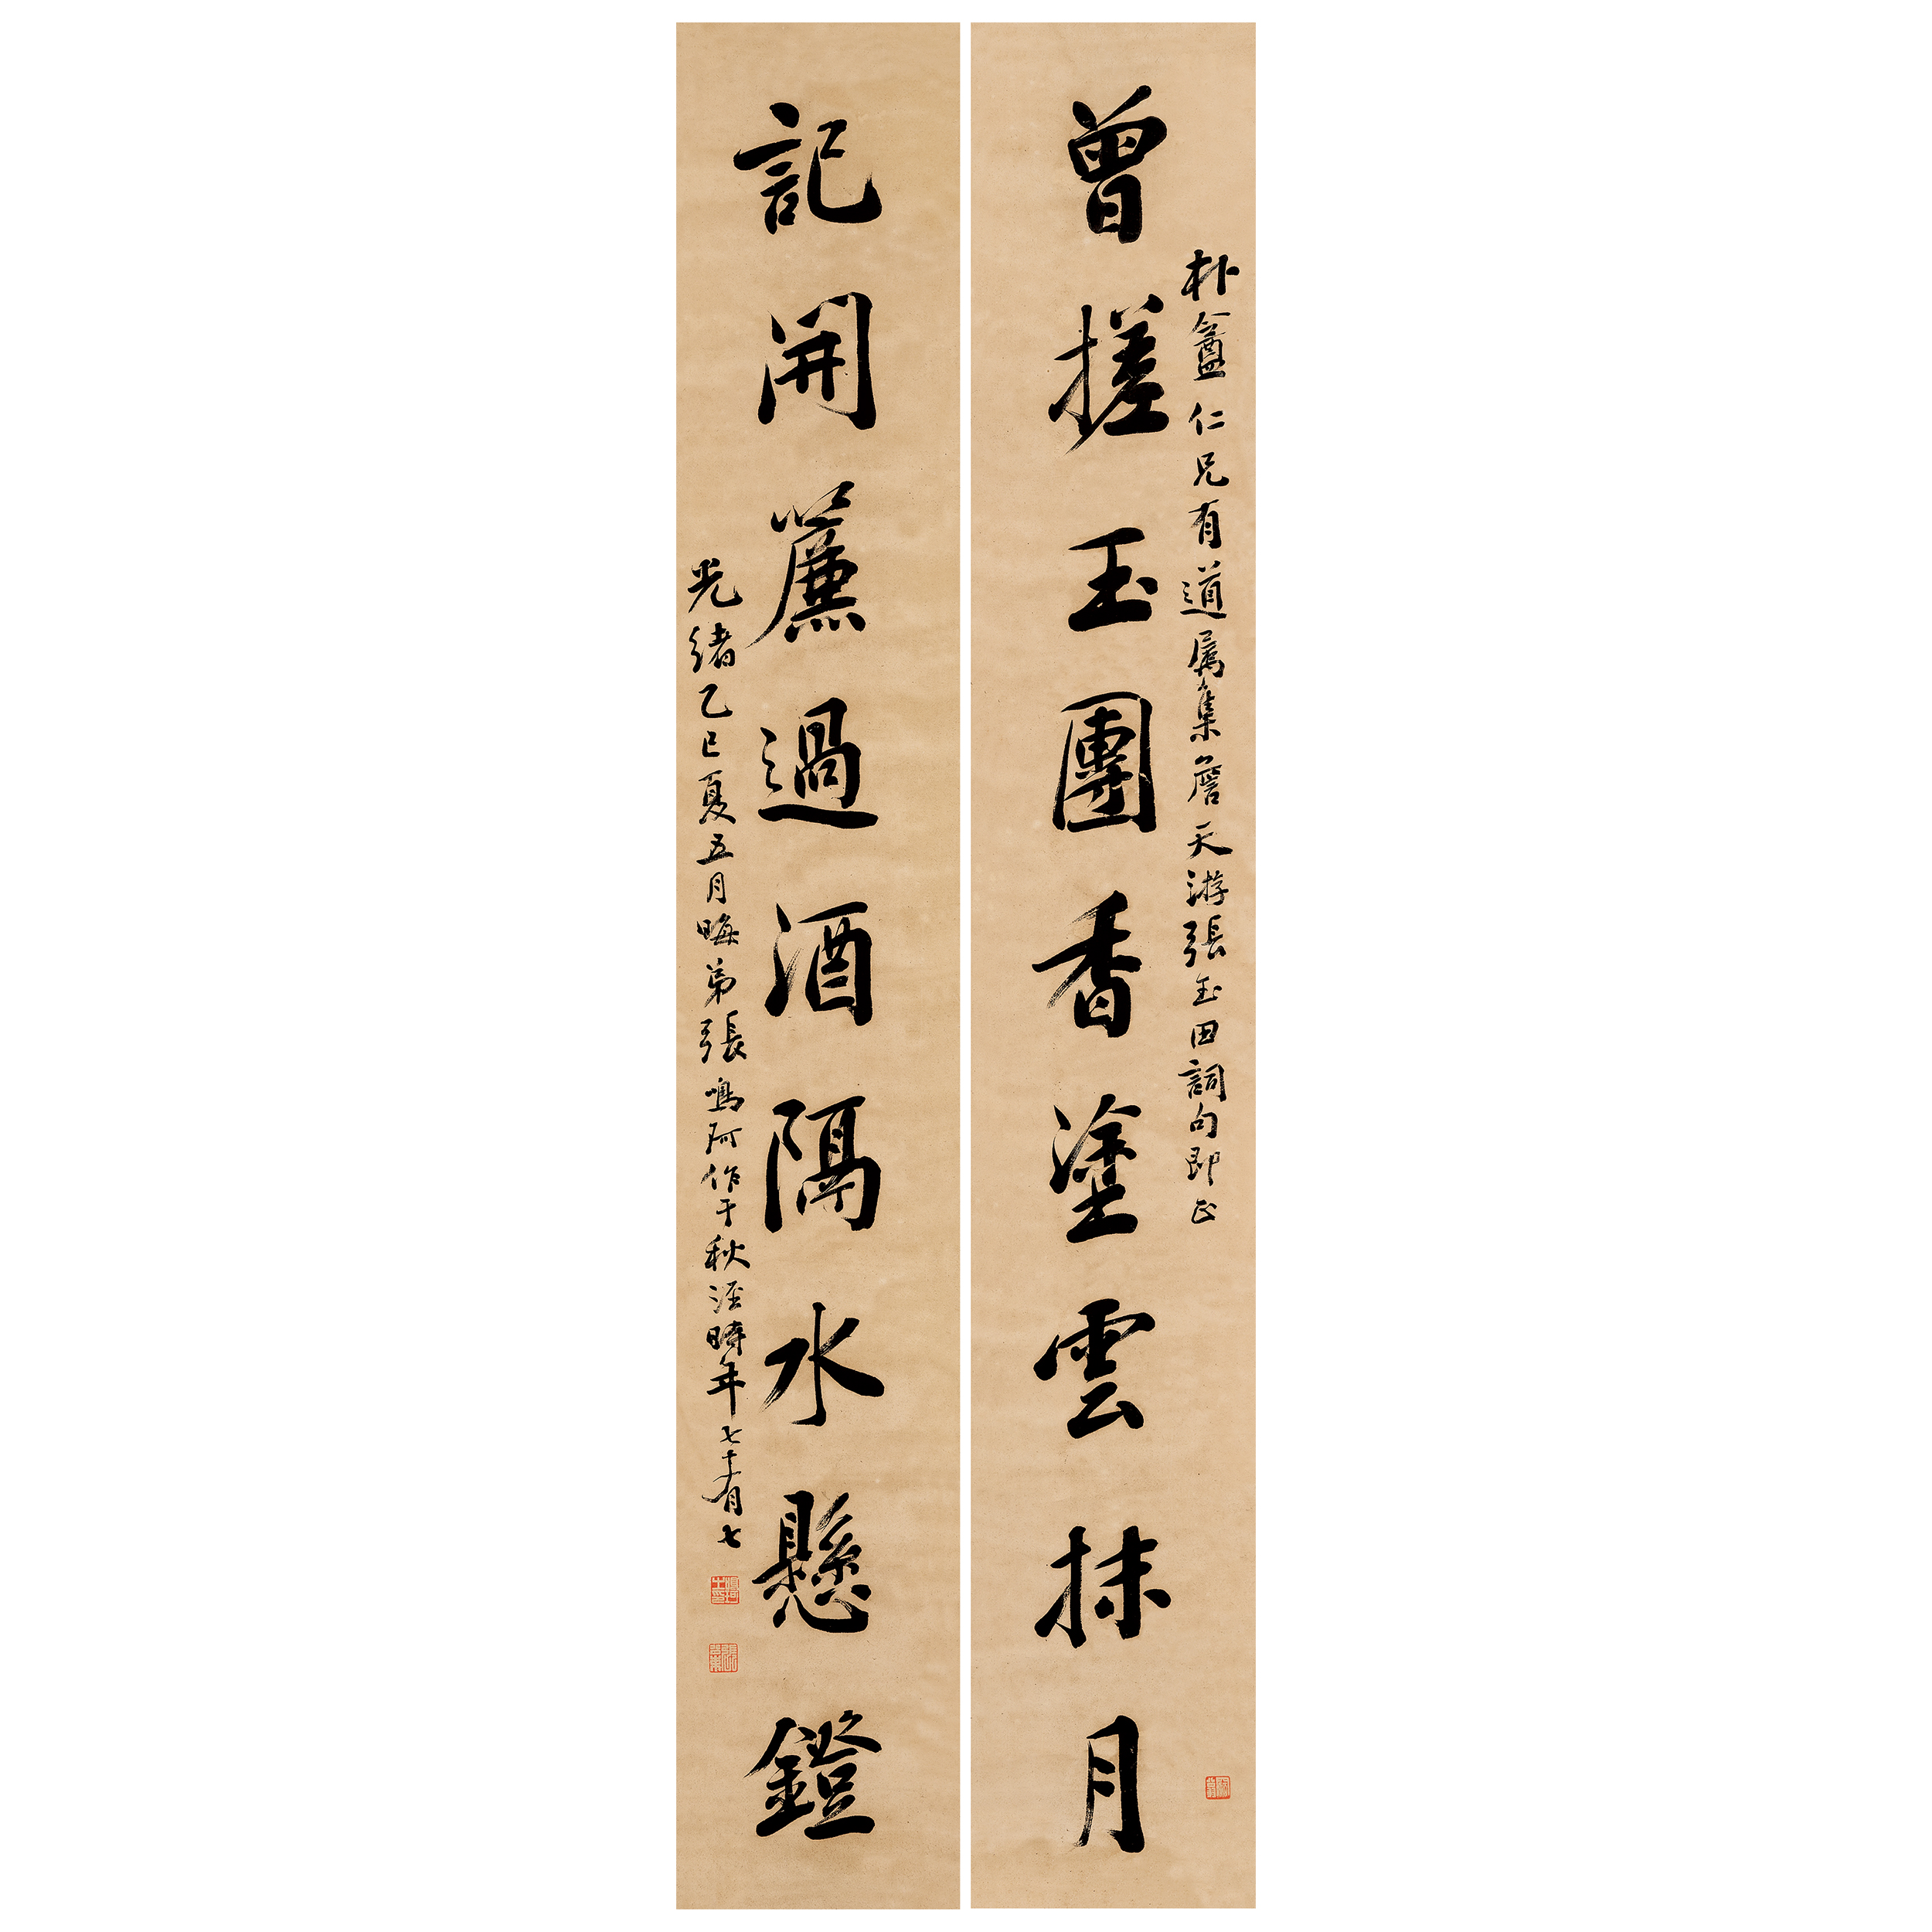 朴盦仁兄有道属集詹天游張玉田詞句即正
曾搓玉團香塗雲抹月
記開簾過酒隔水懸鐙
光緒乙巳夏五月晦弟張鳴珂作于秋涇時年七十有七